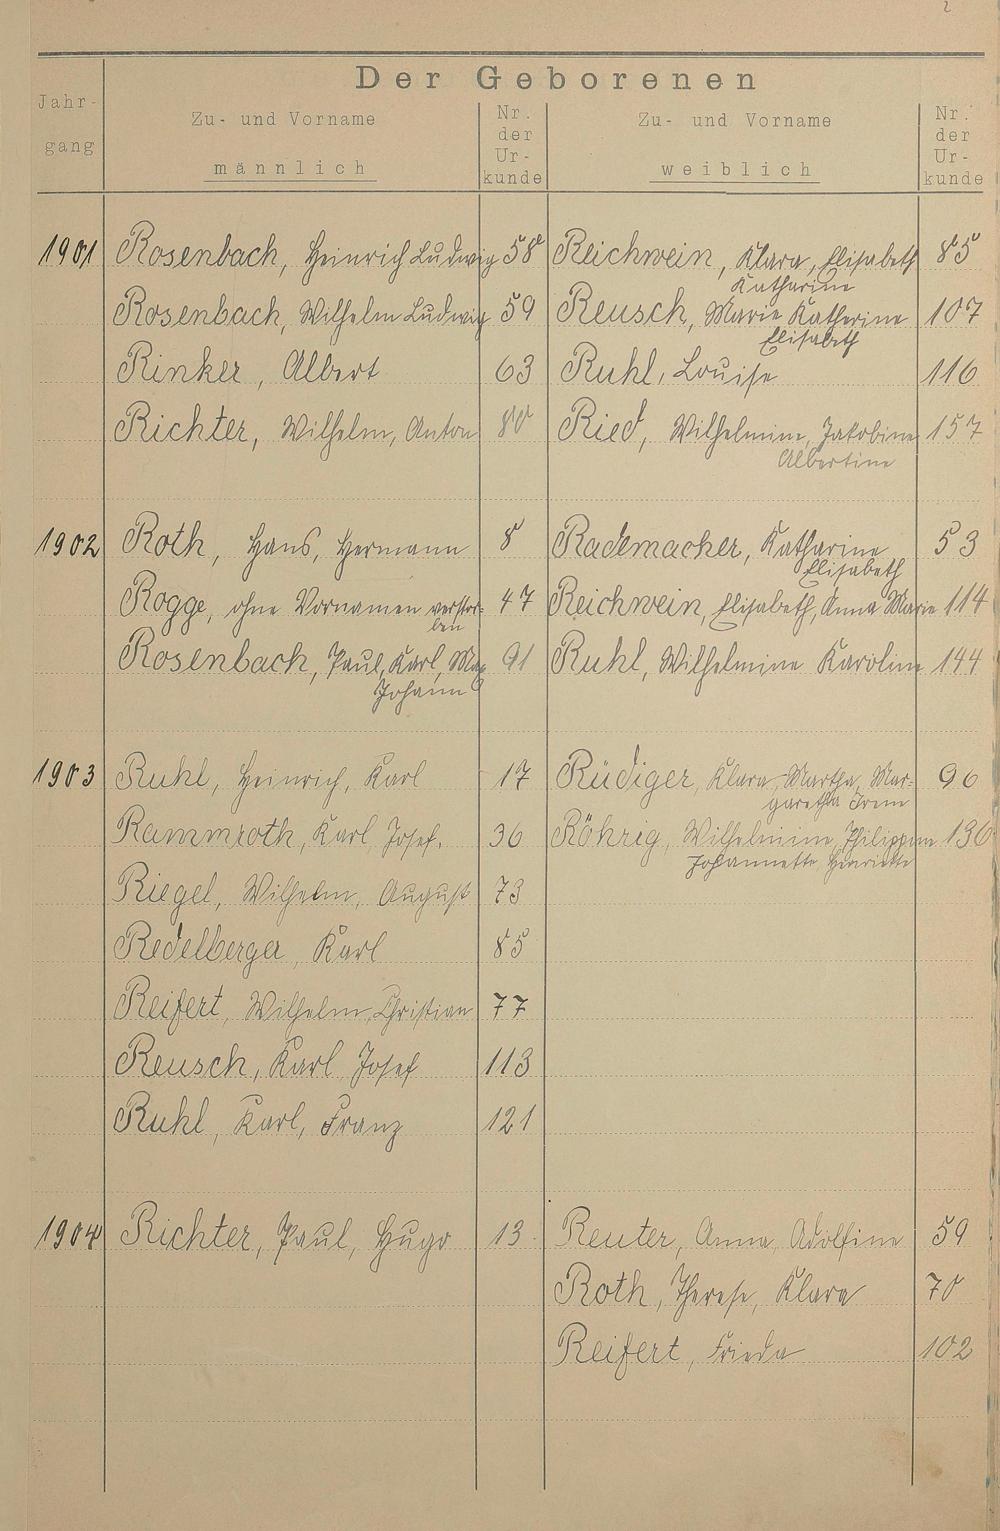 2
Der Geborenen
Jahr-
gang
Zu- und Vorname
männlich
Nr.
der
Ur-
kunde
Zu- und Vorname
weiblich
Nr.
der
Ur-
kunde
1901 Rosenbach, Heinrich Ludwig 58 Reichwein, Klara, Elisabeth 85
Katharine
Rosenbach, Wilhelm Ludwig 59 Reusch, Marie Katherine 107
Elisabeth
Rinker, Albert 63 Ruhl, Louise 116
Richter, Wilhelm, Anton 80 Ried, Wilhelmine, Jakobine 157
Albertine
1902 Roth, Hans, Hermann 8 Rademacher, Katharine 53
Elisabeth
Rogge, ohne Vornamen verstor- 47 Reichwein, Elisabeth, Anna Marie 114
ben
Rosenbach, Paul, Karl, Max 91 Ruhl, Wilhelmine Karoline 144
Johann
1903 Ruhl, Heinrich, Karl 17 Rüdiger, Klara, Martha, Mar- 96
garetha Irene
Rammroth, Karl Josef. 36 Röhrig, Wilhelmine, Philippine 136
Johannette, Henriette
Riegel, Wilhelm, August 73
Redelberger, Karl 85
Reifert, Wilhelm, Christian 77
Reusch, Karl Josef 113
Ruhl, Karl, Franz 121
1904 Richter, Paul, Hugo 13 Reuter, Anna, Adolfine 59
Roth, Therese, Klara 70
Reifert, Frieda 102